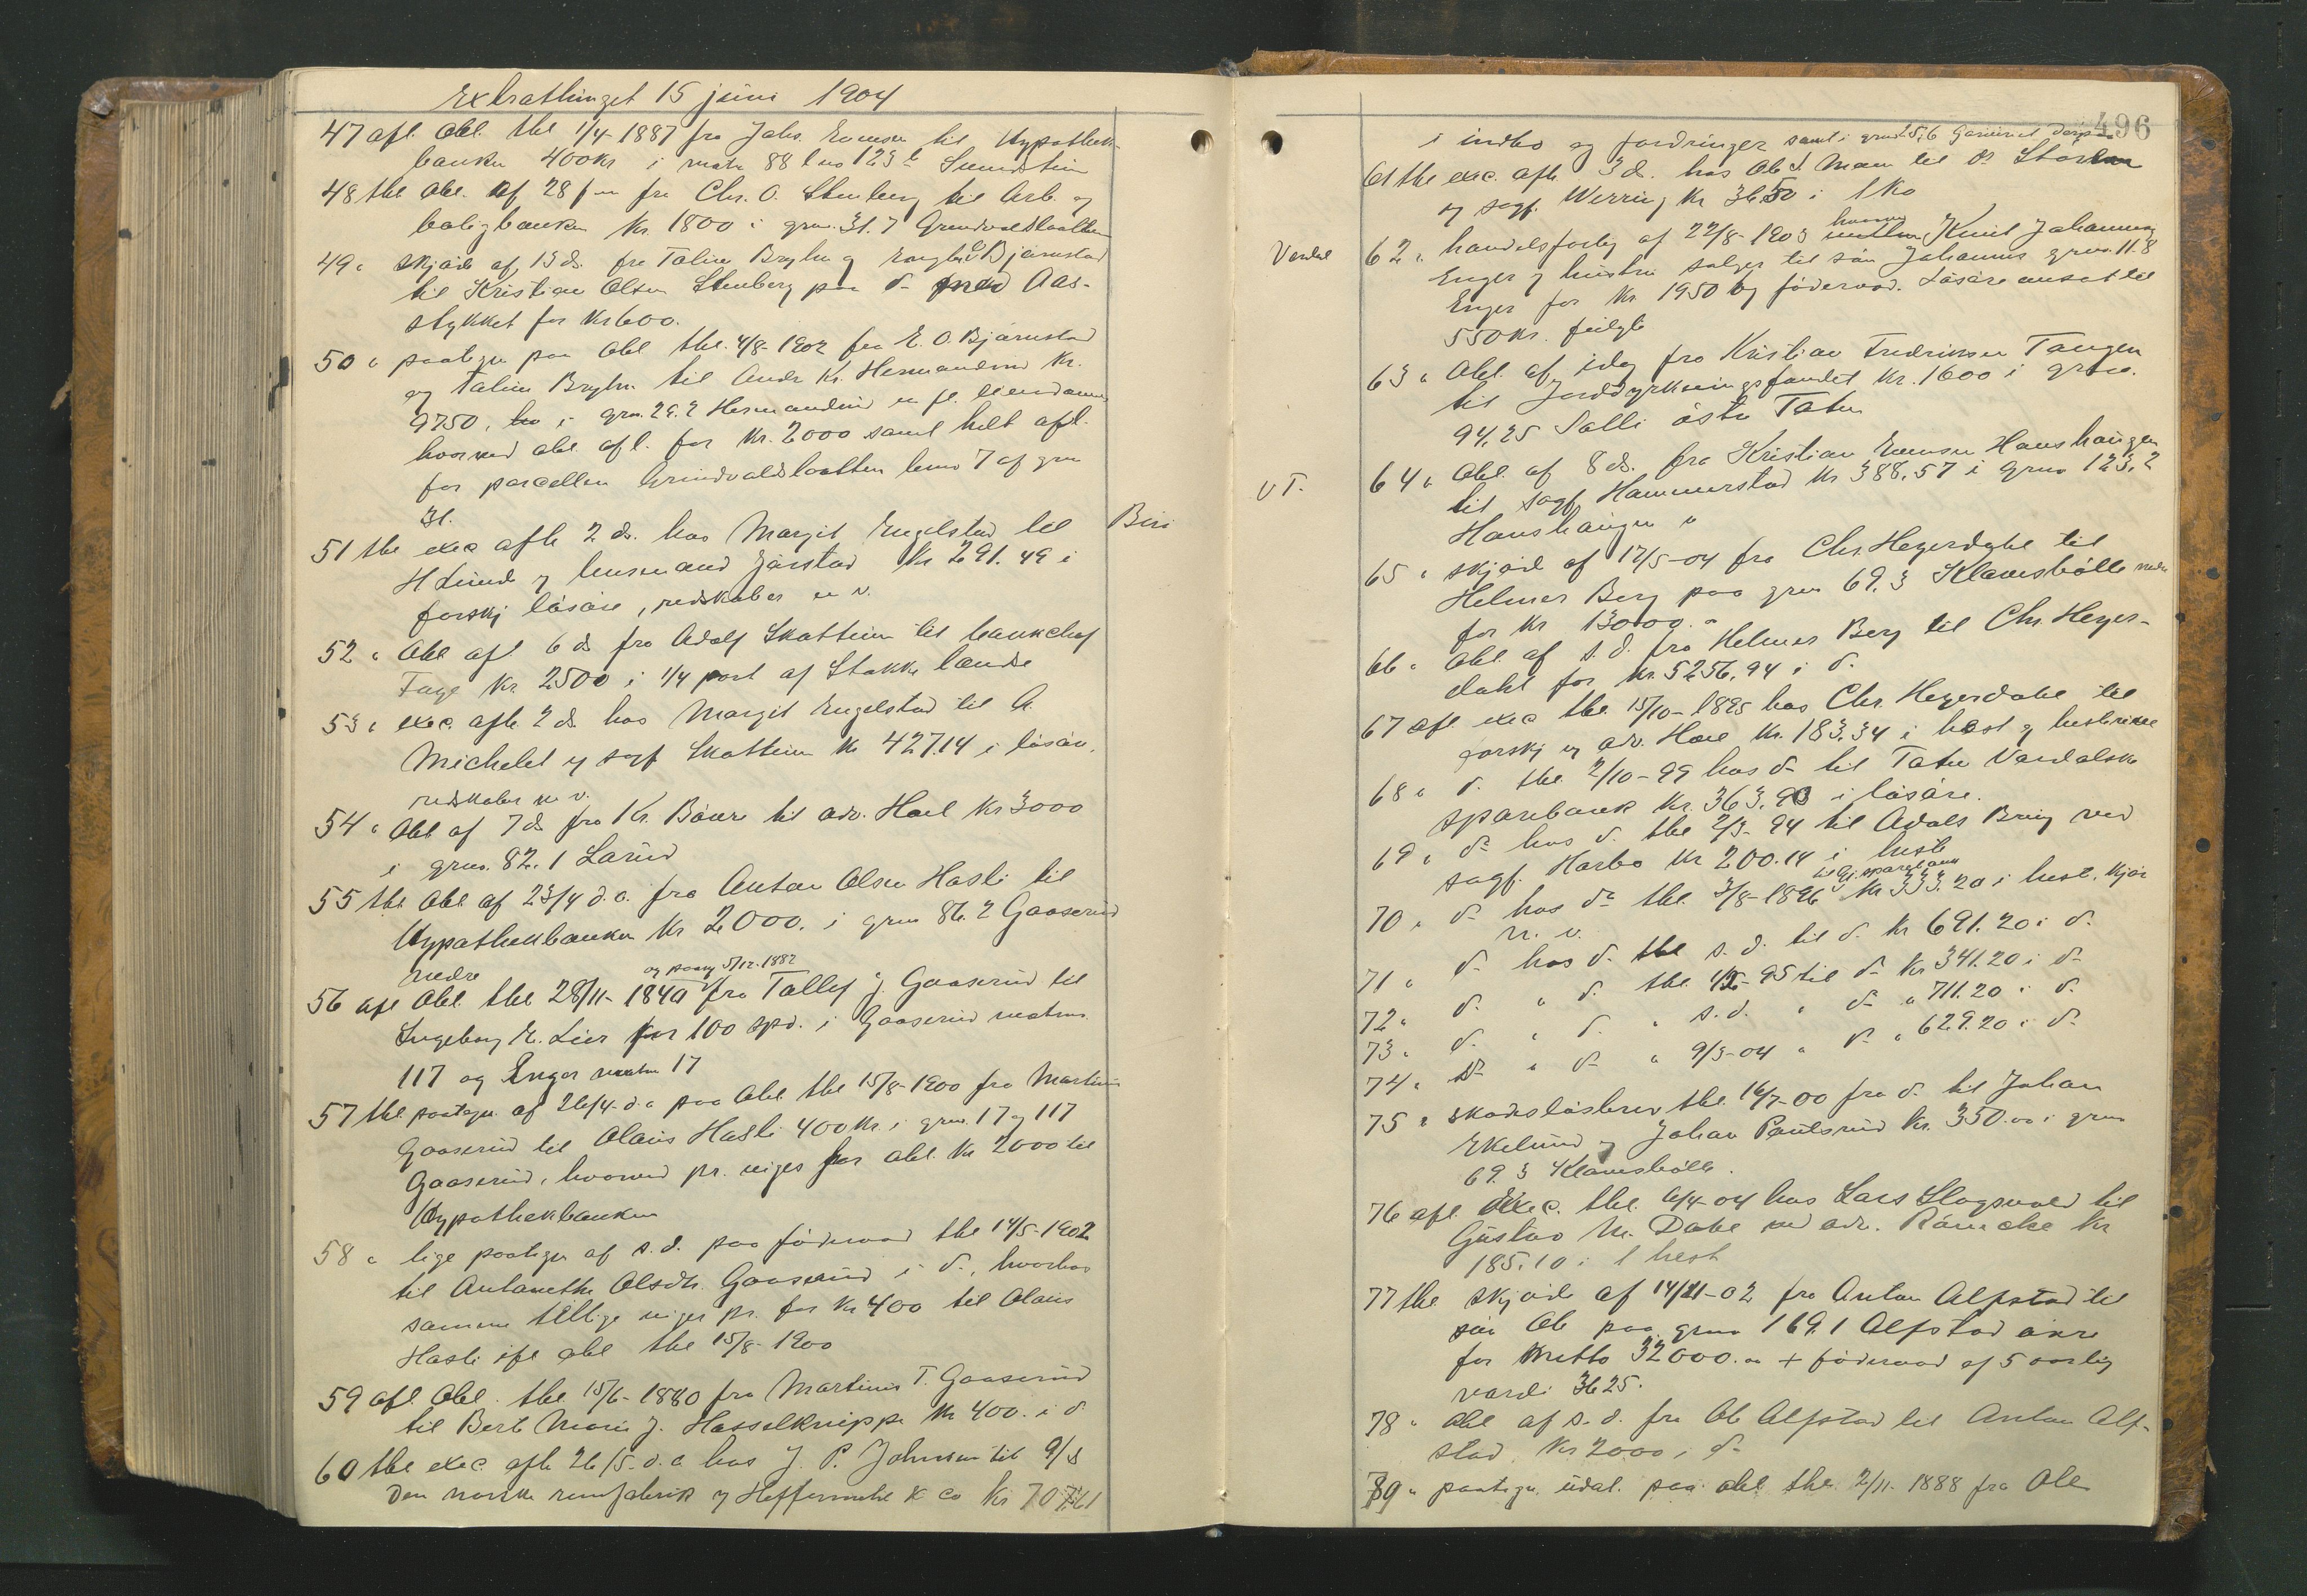 Extrathinget 15 juni 1904
47 afl. Obl. thl 1/4-1887 fra Johs. Evensen til Hypothek-
banken 400 kr i matr 88 l no 123 b Sundstein
48 thl Obl. af 28 fm fra Chr. O. Stenberg til Arb. og
boligbanken Kr. 1800 i grno. 31.7 Grindvoldslaatten
49 " skjöde af 13 ds. fra Taline Bryhn og Engbr. Bjørnstad
til Kristian Olsen Stenberg paa d- Aas-
stykket for Kr 600.
50 " paategn paa Obl thl. 4/8-1902 fra E. O. Bjørnstad
og Taline Bryhn til Andr Kr. Hermandrud Kr.
9750, i grno. 29.2 Hermandrud m fl. eiendomme
hvorved obl afl. for Kr. 2000 samt helt afl.
for parcellen Grindvoldslaatten brno 7 af gno
31.
51 thl exec afh 2 ds. hos Margit Engelstad til Biri
H Lund og lensmand Jørstad Kr 291.49 i
forskj løsøre, redskaber m v.
52 " Obl afl 6 ds fra Adolf Skattum til bankchef
Kr. 2500 i 1/4 part af Stokke landse
53 " exec. afh 2 ds. hos Margit Engelstad til A.
Michelet og sagf Skattum Kr 427.14 i løsøre,
redskaber m v.
54 " Obl af 7 ds fra Kr. til adv. Hoel Kr 3000
i grno. 82.1 Larud
55 thl Obl af 23/4 d.a. fra Anton Olsen Hasli til
Hypothekbanken Kr 2000. i grno 86.2 Gaaserud
nedre
og paateg 5/12-1882
56 afl Obl. thl 28/11-1840 fra Tollef J. Gaaserud til
Ingeborg E. Lier for 100 spd. i Gaaserud matrno
117 og Enger matrn 17
57 thl paategn. af 26/4-d.a paa Obl thl 15/8-1900 fra Martinus
Gaaserud til Olaus Hasli 400 Kr. i grno. 17 og 117
Gaaserud, hvorved pr. viges for obl. Kr 2000 til
Hypothekbanken
58 " lige paategn af s.d. paa föderaad thl 14/5-1902
til Antonethe Olsdtr. Gaaserud i d-, hvorhos
samme tillige viger pr. for Kr 400 til Olaus
Hasli ifl obl thl 15/8-1900
59 afl Obl. thl 15/6-1880 fra Martinus T. Gaaserud
til Bert Marie J. Hasselknippe Kr 400. i d-
60 thl exec afh 26/5-d.a hos J. P. Johnsen til A/S
Den norske remfabrik og Heffermehl & Co Kr 707.61
496
i indbo og fordringer samt i grno 25,6
61 thl exec. afh. 3 ds. hos Ole J. Moen til
og sagf. Werring Kr 36.50 i 1 Ko
Vardal 62 " handelsforlig af 22/8-1903 hvorved Knut Johannes
Enger og hustru sælger til søn Johannes grno. 11.8
Enger for Kr. 1950 og föderaad. Løsøre ansat til
550 kr.
63 " Obl. af idag fra Kristian Fredriksen Tangen
til Jorddyrkningsfondet Kr. 1600 i grno.
94,25 Salli østre Toten
VT. 64 " Obl. af 8 ds. fra Kristian Evensen Honshaugen
til sagf. Hammerstad Kr 388.57 i grno 123.2
Honshaugen
65 " skjöde af 17/5-04 fra Chr. Heyerdahl til
Helmer Berg paa grno 69.3 Klomsbölle nedre
for Kr 13000.-
66 " Obl. af s.d. fra Helmer Berg til Chr. Heyer-
dahl for Kr. 5256.94 i d-
67 afl. exec thl. 15/10-1895 hos Chr. Heyerdahl til
og adv. Hoel Kr. 183.34 i hest og
68 " d- thl. 2/10-99 hos d- til Toten Vardalske
sparebank Kr. 363.90 i løsøre.
69 " d- hos d- thl 2/3-94 til Adolf ved
sagf. Harbo Kr 200.14 i heste
til Gj. sparebank
70 " d- hos d- thl 3/8-1896 Kr 333.20 i hest, kjør
m. v.
71 " d- hos d- thl s.d. til d- Kr 691.20 i d-
72 " d- " d- thl -95 til d- Kr 341.20 i d-
73 " d- " d- " s.d. " d- " 711.20 i d-
74 " d- " d- " 9/3-04 " d- " 629.20 i d-
75 " skadesløsbrev thl. 16/7-00 fra d- til Johan
Ekelund og Johan Paulsrud Kr. 350.00 i grno
69.3 Klomsbölle.
76 afl. exec. thl. 6/4-04 hos Lars Slagsvold til
Gustav M. Dahl ved adv. Kr
185.10 i 1 hest
77 thl skjöde af 14/11-02 fra Anton Alfstad til
søn Ole paa grno 169.1 Alfstad øvre
for netto 32000.00 + föderaad af 5 aarlig
værdi 3625.
78 " Obl af s.d. fra Ole Alfstad til Anton Alf-
stad Kr 2000 i d-
79 " paategn. udsl. paa obl thl. 2/11-1888 fra Ole